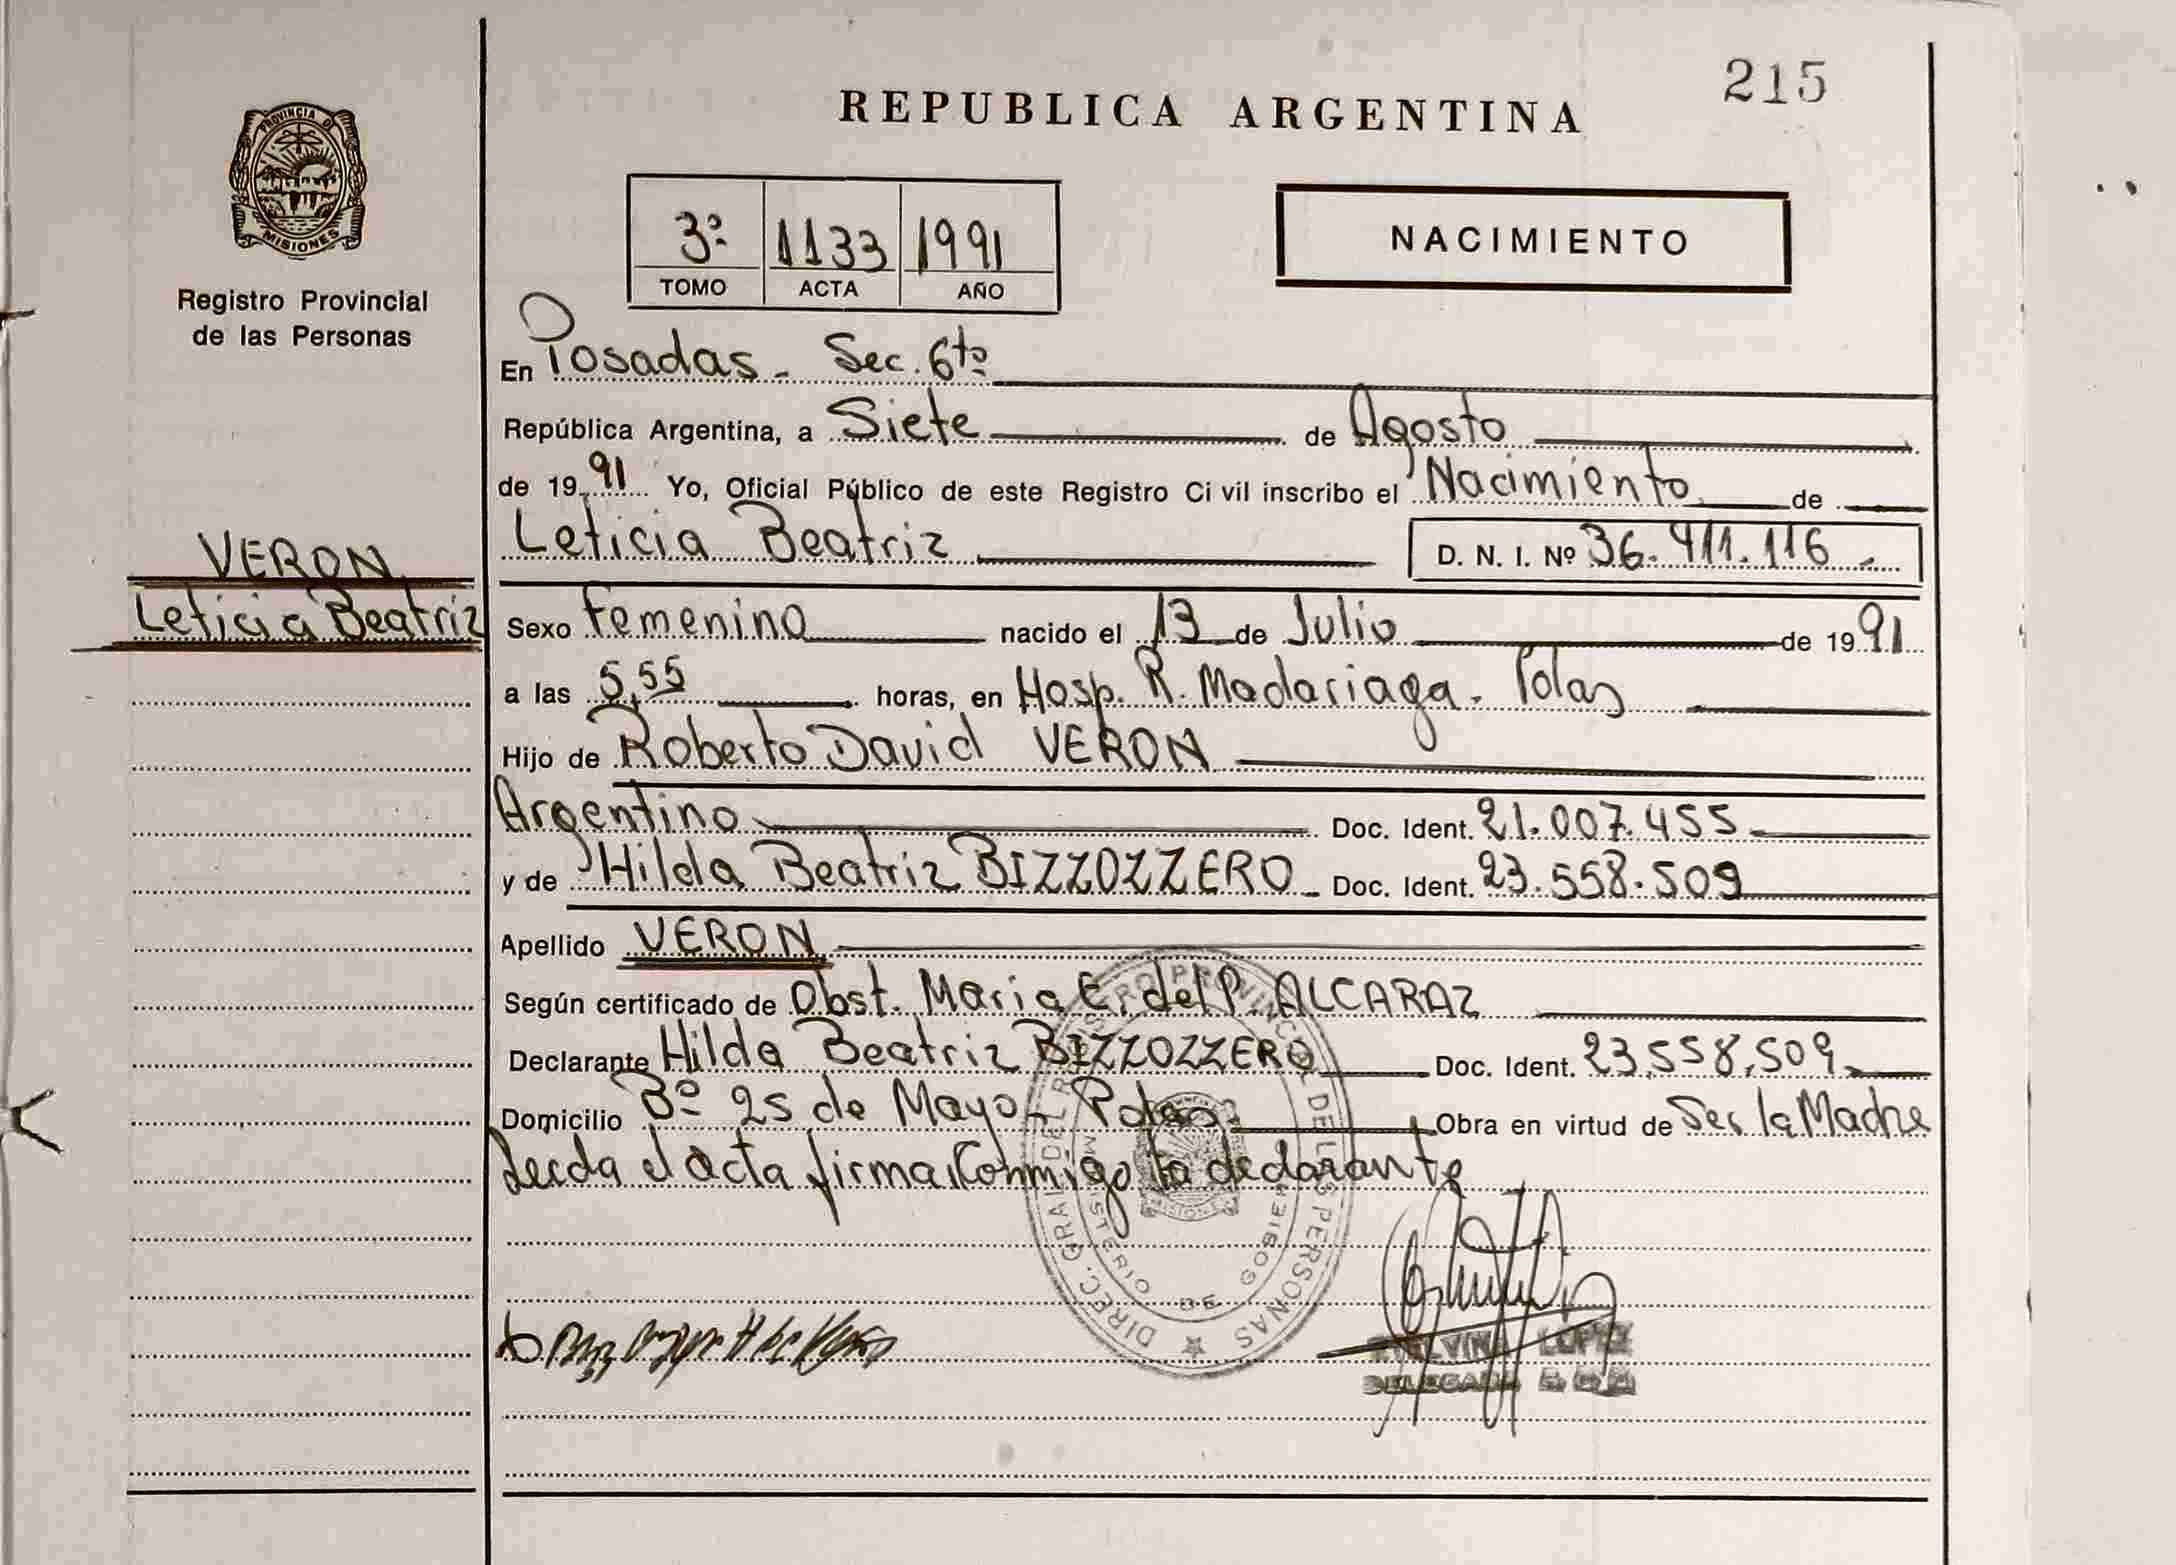 215
REPUBLICA ARGENTINA
PROVINCIA DE
MISIONES
Registro Provincial
de las Personas
3º 1133 1991
TOMO ACTA AÑO
NACIMIENTO
En Posadas - Sec. 6ta
República Argentina, a Siete de Agosto
de 1991 Yo, Oficial Público de este Registro Civil inscribo el Nacimiento de
Leticia Beatriz D. N. I. Nº 36.411.116
VERON
Leticia Beatriz
Sexo Femenino nacido el 13 de Julio de 1991
a las 5,55 horas, en Hosp. R. Madariaga - Pdas
Hijo de Roberto David VERON
Argentino Doc. Ident. 21.007.455
y de Hilda Beatriz BIZZOZZERO Doc. Ident. 23.558.509
Apellido VERON
Según certificado de Obst. Maria E. del P. ALCARAZ
Declarante Hilda Beatriz BIZZOZZERO Doc. Ident. 23,558,509
Domicilio Bº 25 de Mayo - Pdas Obra en virtud de Ser la Madre
Leida el acta firma conmigo la declarante
DIREC. GRAL. DEL REGISTRO PROVINCIAL DE LAS PERSONAS
MINISTERIO DE GOBIERNO
LOPEZ
DELEGADA